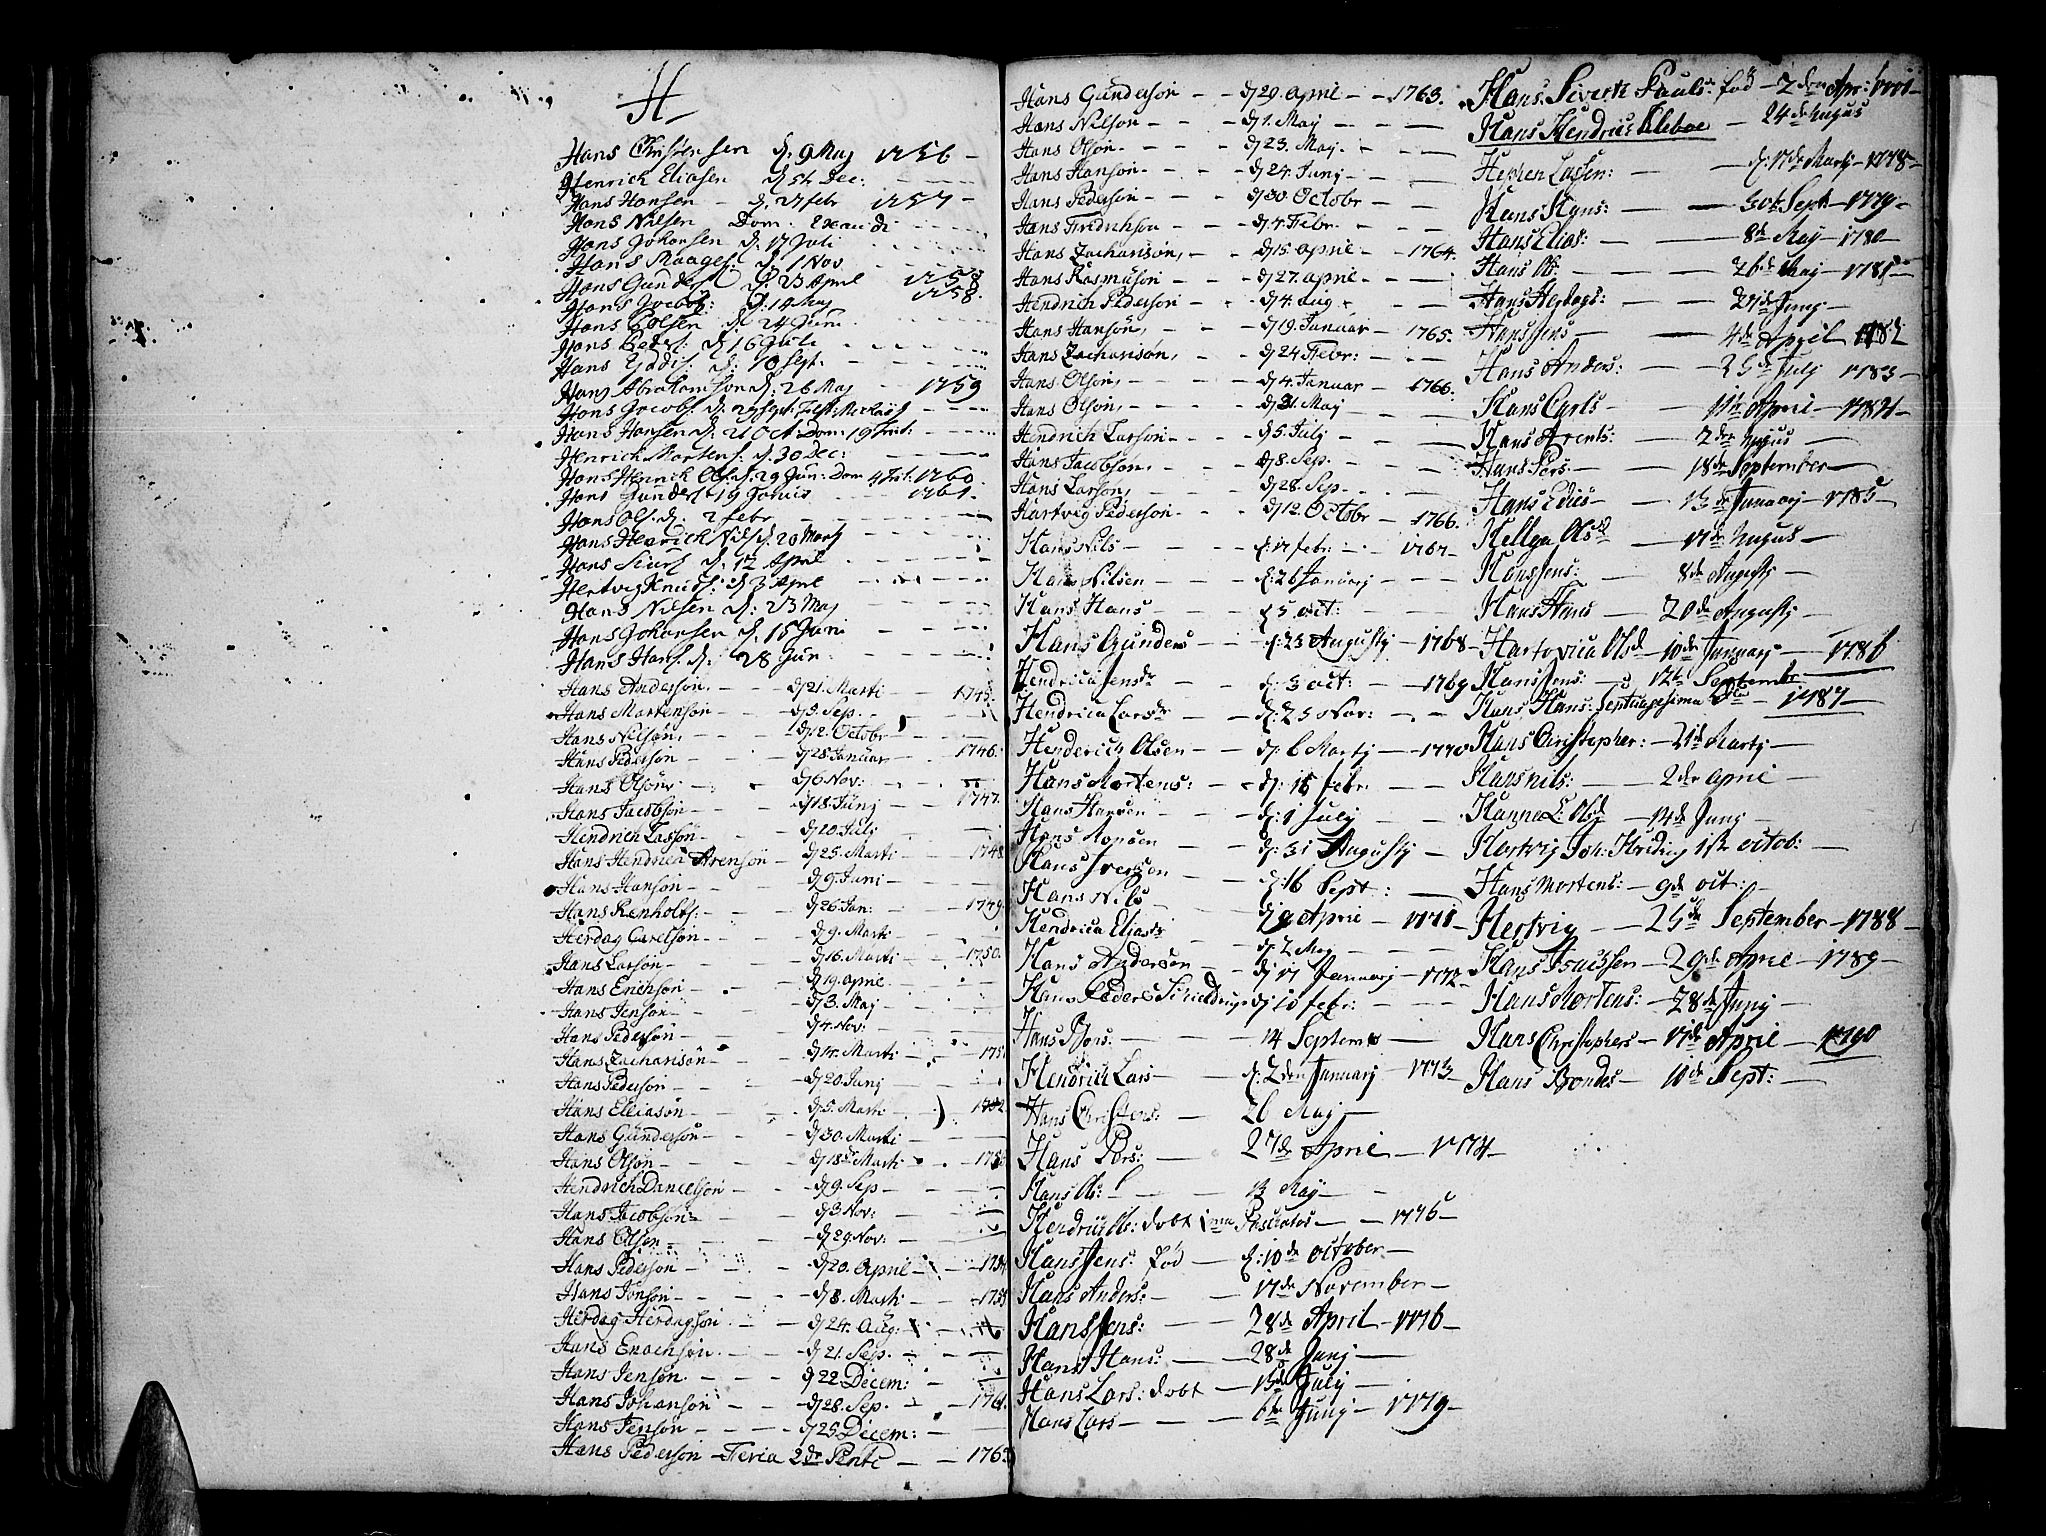 H
Hans Christensen d. 9 Maj 1756 -
Henrick Eliasen Dec:
Hans Hansen - d. 27 febr 1757 -
Hans Nilsen Dom. Exaudi
Hans Johansen d: 17 Juli
Hans Maages: d: 1 Nov
Hans Gunders d. 23 April
Hans Jacobs: d. 14 Maj 1758.
Hans Olsen d 24 Juni
Hans Peders: d 16 Juli
Hans d: 10 Sept.
Hans Abrahamsen d: 26 Maj 1759
Hans Jacobs: d: 29 Sept: Fest: Michaelis
Hans Hansen d: 21 Oct: Dom: 19 Trinit:
Henrick Mortens. d. 30 Dec:
Hans Henrick Ols. d. 29 Jun: Dom 4 Trit. 1760.
Hans Gunders 19 Janus 1761.
Hans Ols. d. 2 febr
Hans Henrick Nils d: 20 Marty
Hans Siurs d. 12 April
Hertvig Knuds: d 3 Apr
Hans Nilsen d: 23 Maj
Hans Johansen d. 15 Juni
Hans Hans. d: 28 Jun:
Hans Anderson. - - d 21. Marti - - 1745.
Hans Martenson - - d 5. Sep.
Hans Nilson. d 12. Octobr
Hans Pederson - - d 28. Januar - 1746.
Hans Olson d 6 Nov:
Hans Jacobson - - d 18. Junj - - 1747.
Hendrich Lasson - - d 20. Julj
Hans Hendrich Arenson - d 25. Marti - - 1748.
Hans Hanson - - d 9. Juni -
Hans Renholts: - - d 26. Jan: - - 1749.
Herdag Carelson - - d 9. Marti
Hans Larson - - d 16. Marti - - 1750.
Hans Erichson - - d 19. april
Hans Jenson - - d 3. Maj
Hans Pederson - - d 4. Nov:
Hans Zacharison - - d 14. Marti - 175
Hans Pederson - - d 20. Junj
Hans Elliason - - d 5. Marti 1752.
Hans Gunderson - - d 30. Marti
Hans Olson - - d 18. Marti - 175
Hendrich Danielson - - d 9. Sep
Hans Jacobson - - d 3 Nov:
Hans Olson - - d 29 Nov:
Hans Pederson - - d 20. April - - 175
Hans Jonson - - d 8. Marti - 175
Herdag Herdagson - d 24. Aug:
Hans Enochson - - d 21. Sep.
Hans Jenson - - d 22 Decem: -
Hans Johanson - - d 28. Sep. - 1761.
Hans Jenson - - d 25 Decem: -
Hans Pederson - Feria 2dr Pente - - 176
Hans Gunderson - - d 29. april - - 1763.
Hans Nilson - - d 1. Maj
Hans Olson - - d 23. Maj
Hans Hanson - - d 24. Junj
Hans Pederson - - d 30. Octobr
Hans Fredrikson - - d 4. Febr.
Hans Zacharison, - - d 15. april - - 1764.
Hans Rasmuson - - d 27. april
Hendrich Pederson - - d 4. Aug
Hans Hanson, - - d 19. Januar - 1765.
Hans Zacharison, - - d 24 Febr:
Hans Olson, - - d 4. Januar - 1766.
Hans Olson, - - d 31. Maj
Hendrich Larson - - d 5. Julj
Hans Jacobson, - - d 8. Sep.
Hans Larson, - - d 28. Sep
Hartvig Pederson - - d 12. Octobr - 1766.
Hans Nils - - d: 17 febr: - 1767
Hans Nilsen - - d: 26 Januarj
Hans Hans - - d 5 oct:
Hans Gunders - - d: 23 Augustj - 1768
Hendrica Jensdr d: 3 oct: - 1769
Hendrica Larsdr d: 25 Nov:
Henderich Olsen - - d: 6 Martj - 1770
Hans Mortens: - - d: 15 febr:
Hans Hansen d: 1 July
Hans d: 31 Augustj
Hans Iversen d: 16 Sept:
Hans Nils d: 2 April - 1771
Hendrica Eliasdr d: 2 Maj
Hans Andersen - - d: 17 Januarj - 1772
Hans Peders d: 10 febr:
Hans - 14 Septembr
Hendrich Lars - d: 2den Januarj - 1773
Hans Christens: - 26 Maj
Hans Pers: - 27de April - 1774
Hans Ols: - 13 Maj
Hendrich Ols: døbt - 1775
Hans Jens: fød - d: 10de october
Hans Anders: - 17de November
Hans Jens: - 28de April - 1776
Hans Hans: - 28de Junj
Hans Lars: døbt - 13de July
Hans Lars - 6te Junj - 1779
Hans Siverts Pauls: fød - 2den Apr:
Hans Hendrics Kleboe - 24de Augus
Lassen: - d: 17de Martj - 1778
Hans Hans: - 30te Sept - 1779
Hans Elias: - 8de Maj - 1780
Hans Ols - 26de Maj - 1781
Hans Herdags: - 27de Junj
Hans Jens - 4de April 1782
Hans Anders: - 25de July 1783
Hans Carls - 11te April - 1784
Hans Arents: - 2den Augus
Hans Pers - 18de September
Hans Edies - 13de Januarj - 1785
Hellga Olsd - 17de Augus
Hans Jens: - 8de Augustj
Hans Hans - 20de Augustj
Hartovica Olsd - 10de Januarj - 1786
Hans Jens: - 12te September
Hans Hans: Septuagesima - 1787
Hans Christopher: - 21de Martj
Hans Nils: - 2den april
Hanna L. Olsd - 14de Junj
Hartvig Joh: 1ste octob:
Hans Mortens: - 9de oct:
Hertvig - 25de September - 1788
Hans Isachsen - 29de April - 1789
Hans Mortens: - 28de Junj
Hans Christophers - 17de April - 1790
Hans Bondes - 10de Sept: